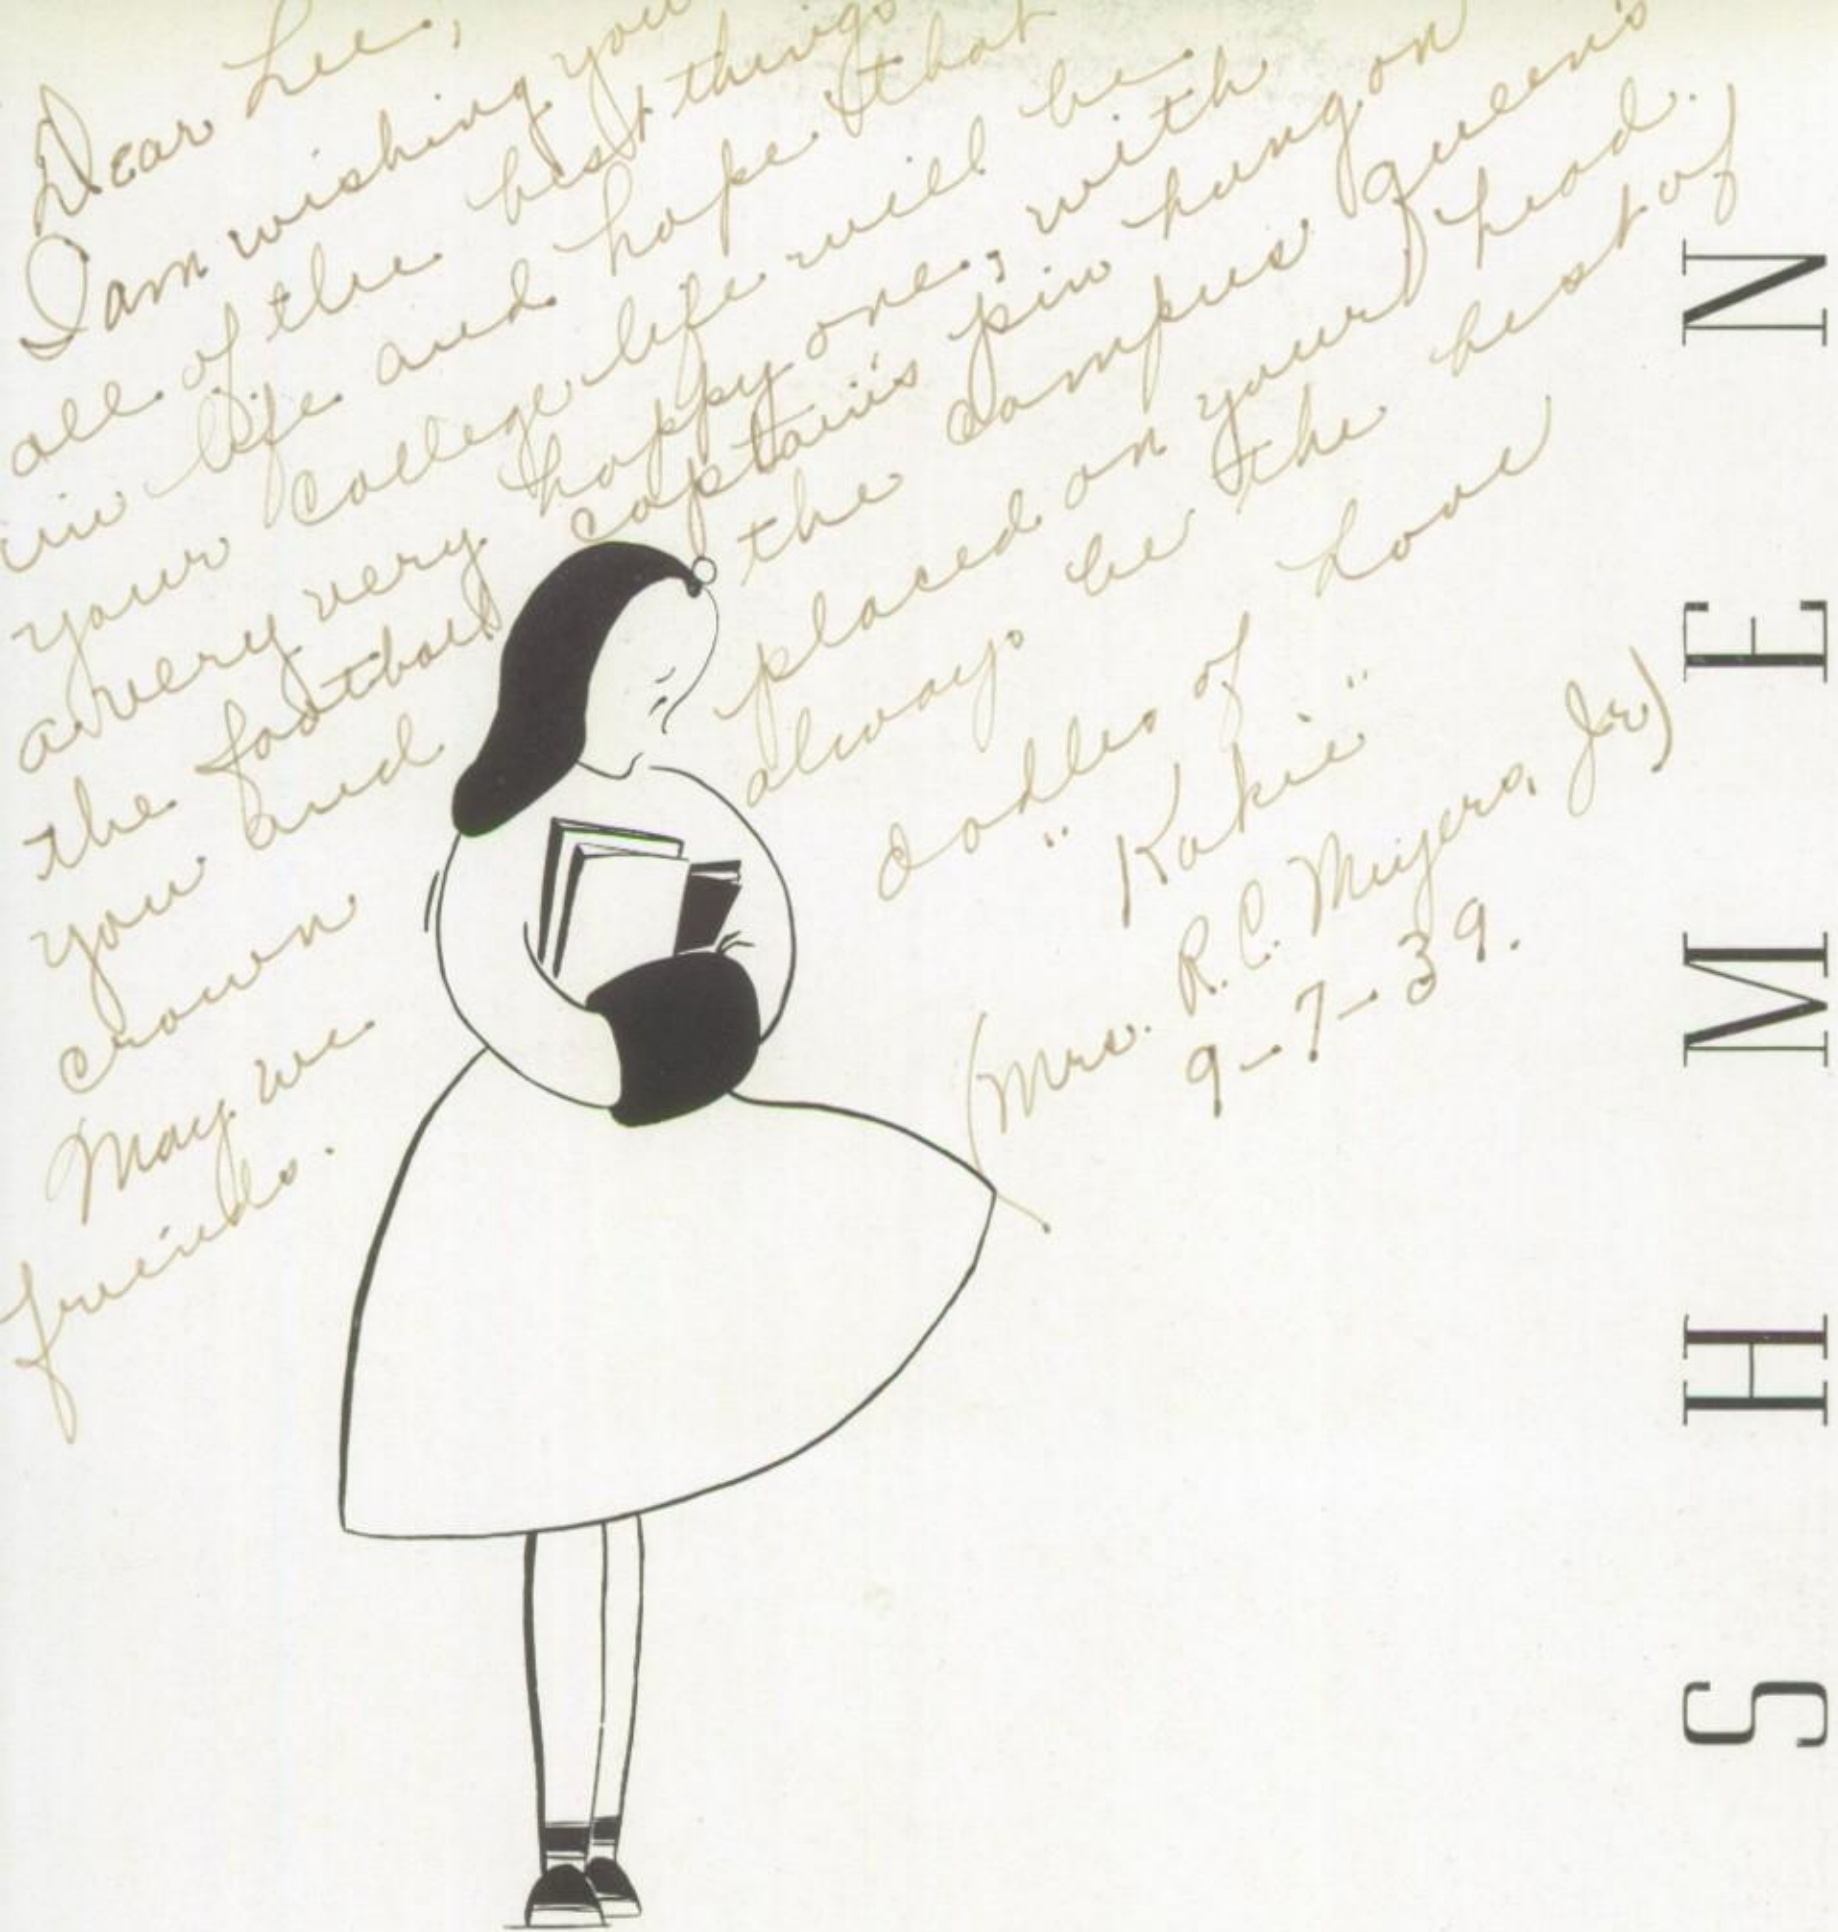 Dear Lee,
I am wishing you
all of the best things
in life and hope that
your college life will be
a very very happy one, with
the football captain's pin hung on
you and the campus queen's
crown placed on your head.
May we always be the best of
friends.
oodles of love
"Kakie"
(Mrs. R.C. Meyers, Jr.)
9-7-39.
SHMEN